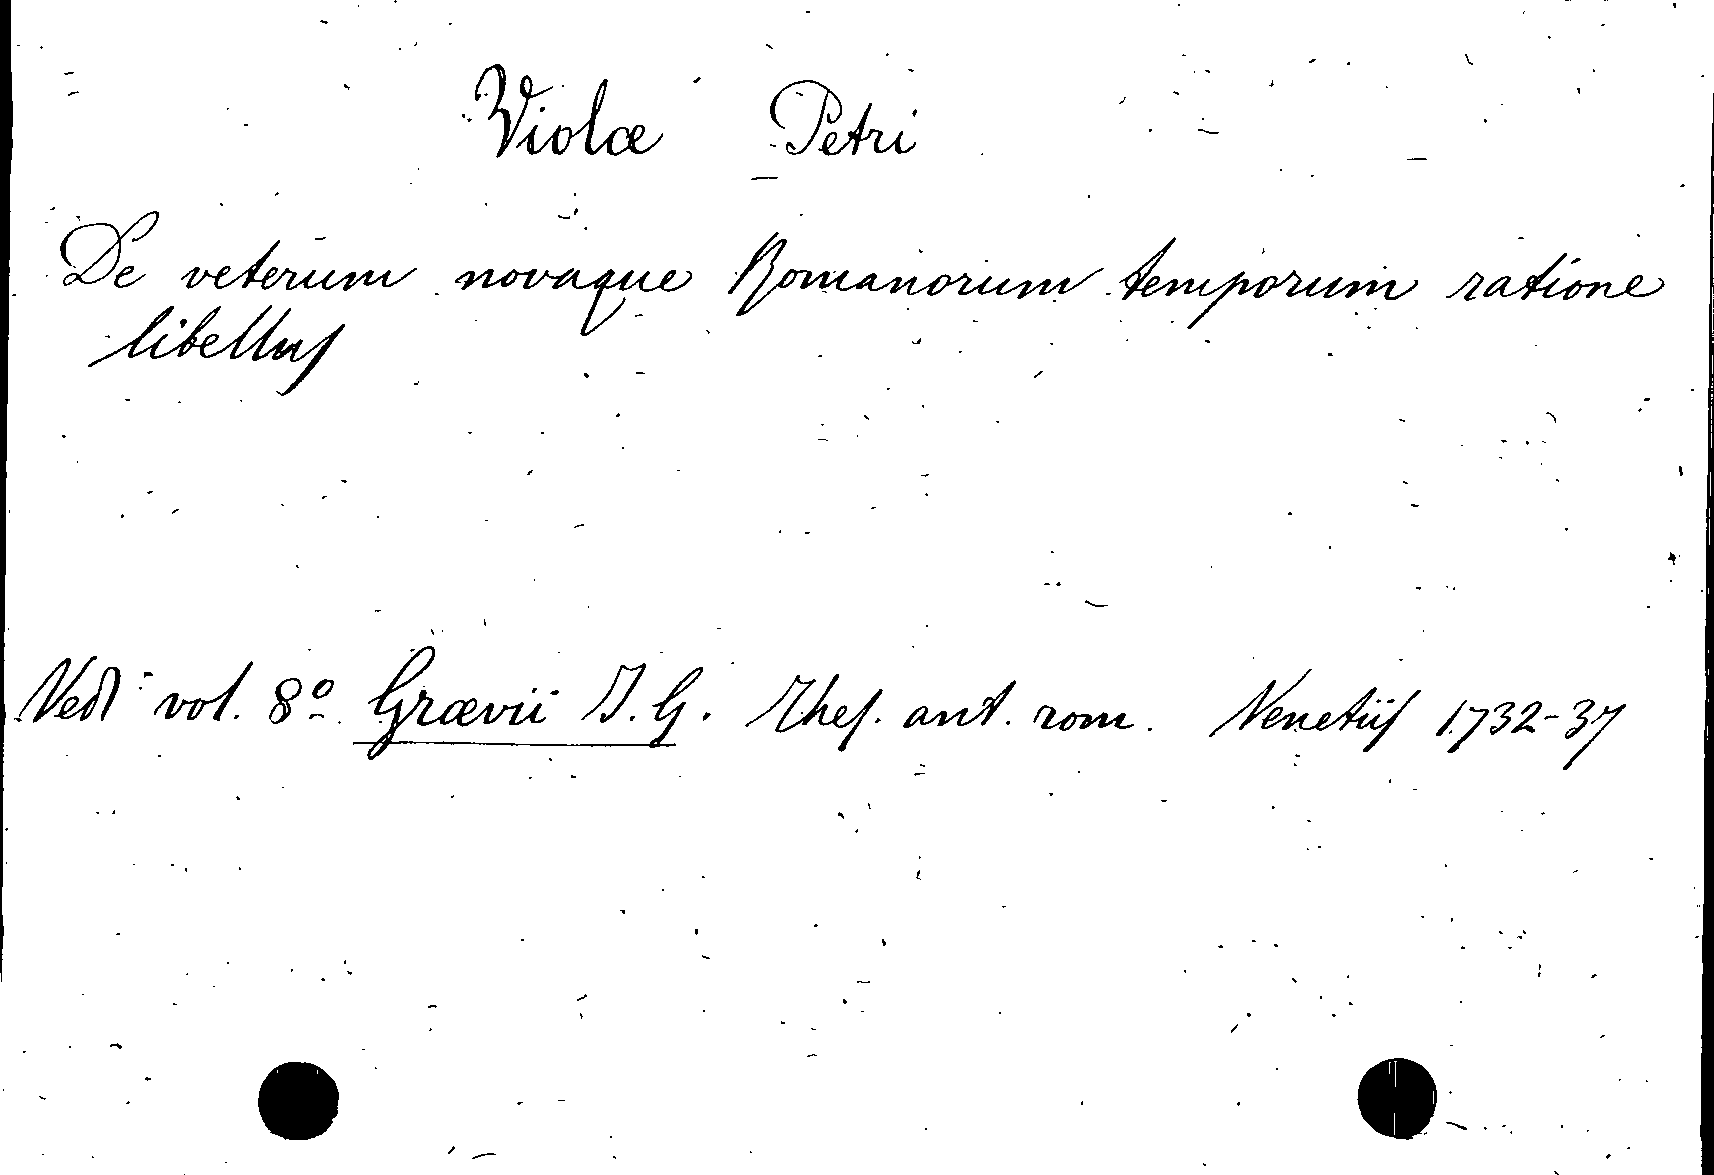 Violæ Petri
De veterum novaque Romanorum temporum ratione
libellus
Vedi vol. 8º Grævii J. G. Thes. ant. rom. Venetiis 1732-37